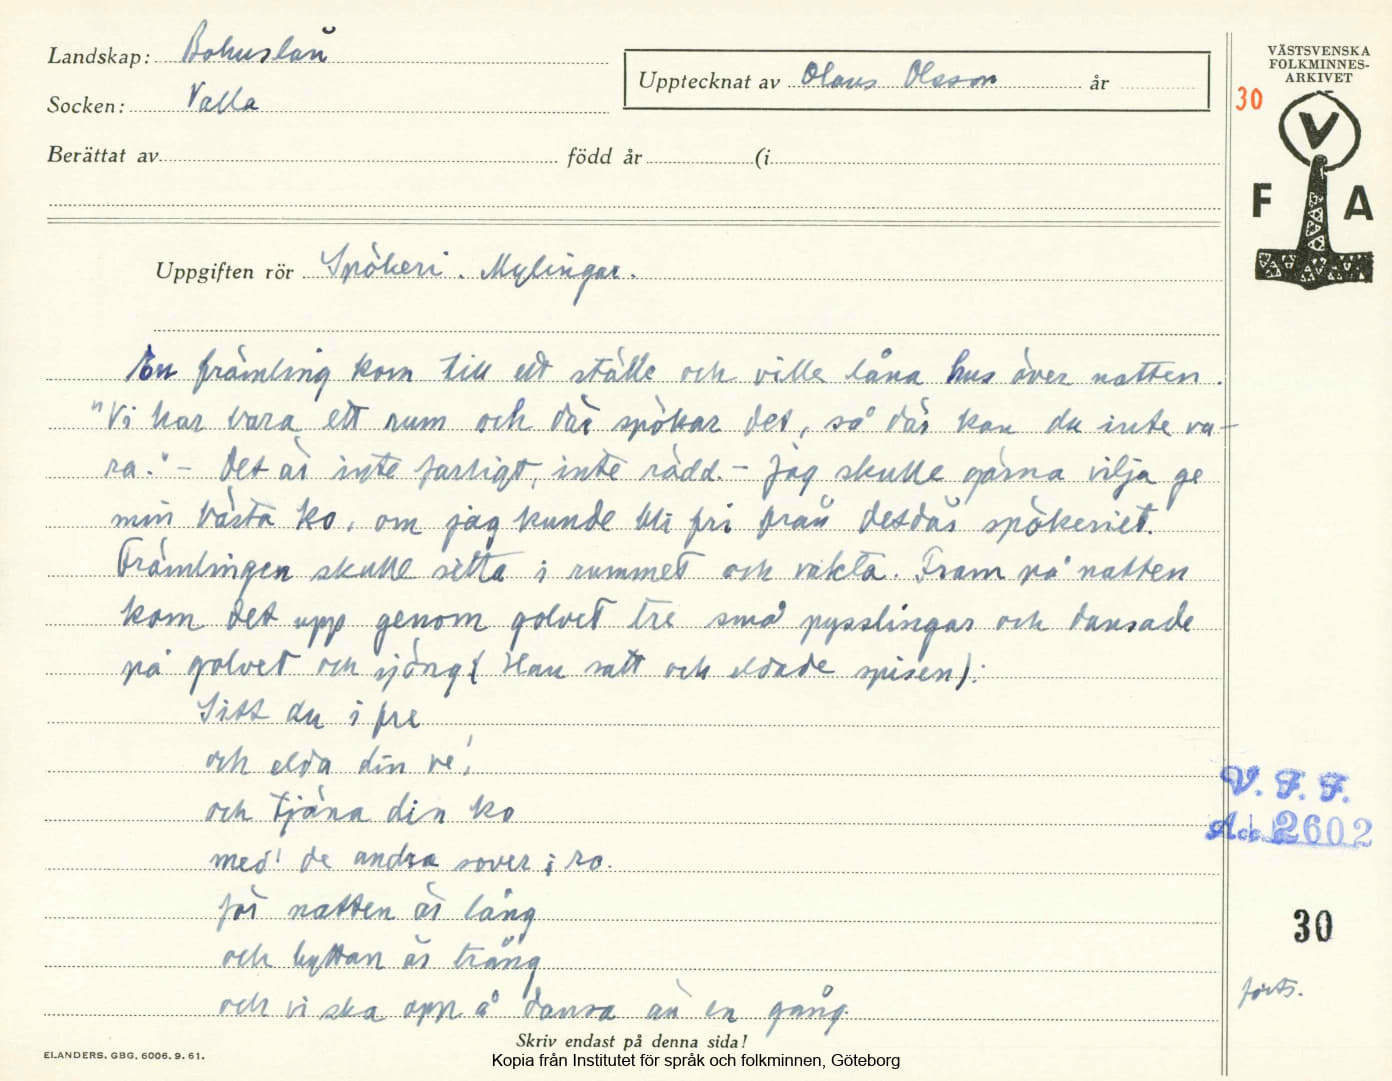 Landskap: Bohuslän
Socken: Valla
Upptecknat av Olaus Olsson år
Berättat av född år (i
VÄSTSVENSKA
FOLKMINNES-
ARKIVET
30
V
F A
Uppgiften rör Spökeri. Mylingar.
En främling kom till ett ställe och ville låna hus över natten.
"Vi har bara ett rum och där spökar det, så där kan du inte va-
ra." – Det är inte farligt, inte rädd. – Jag skulle gärna vilja ge
min bästa ko, om jag kunde bli fri från detdär spökeriet.
Främlingen skulle sitta i rummet och vakta. Fram på natten
kom det upp genom golvet tre små pysslingar och dansade
på golvet och sjöng (Han satt och eldade spisen):
Sitt du i fre
och elda din ve',
och tjäna din ko
med' de andra sover i ro.
för natten är lång
och hyttan är trång
och vi ska opp å dansa än en gång.
V. F. F.
Acc 2602
30
forts.
Skriv endast på denna sida!
ELANDERS. GBG. 6006. 9. 61.
Kopia från Institutet för språk och folkminnen, Göteborg